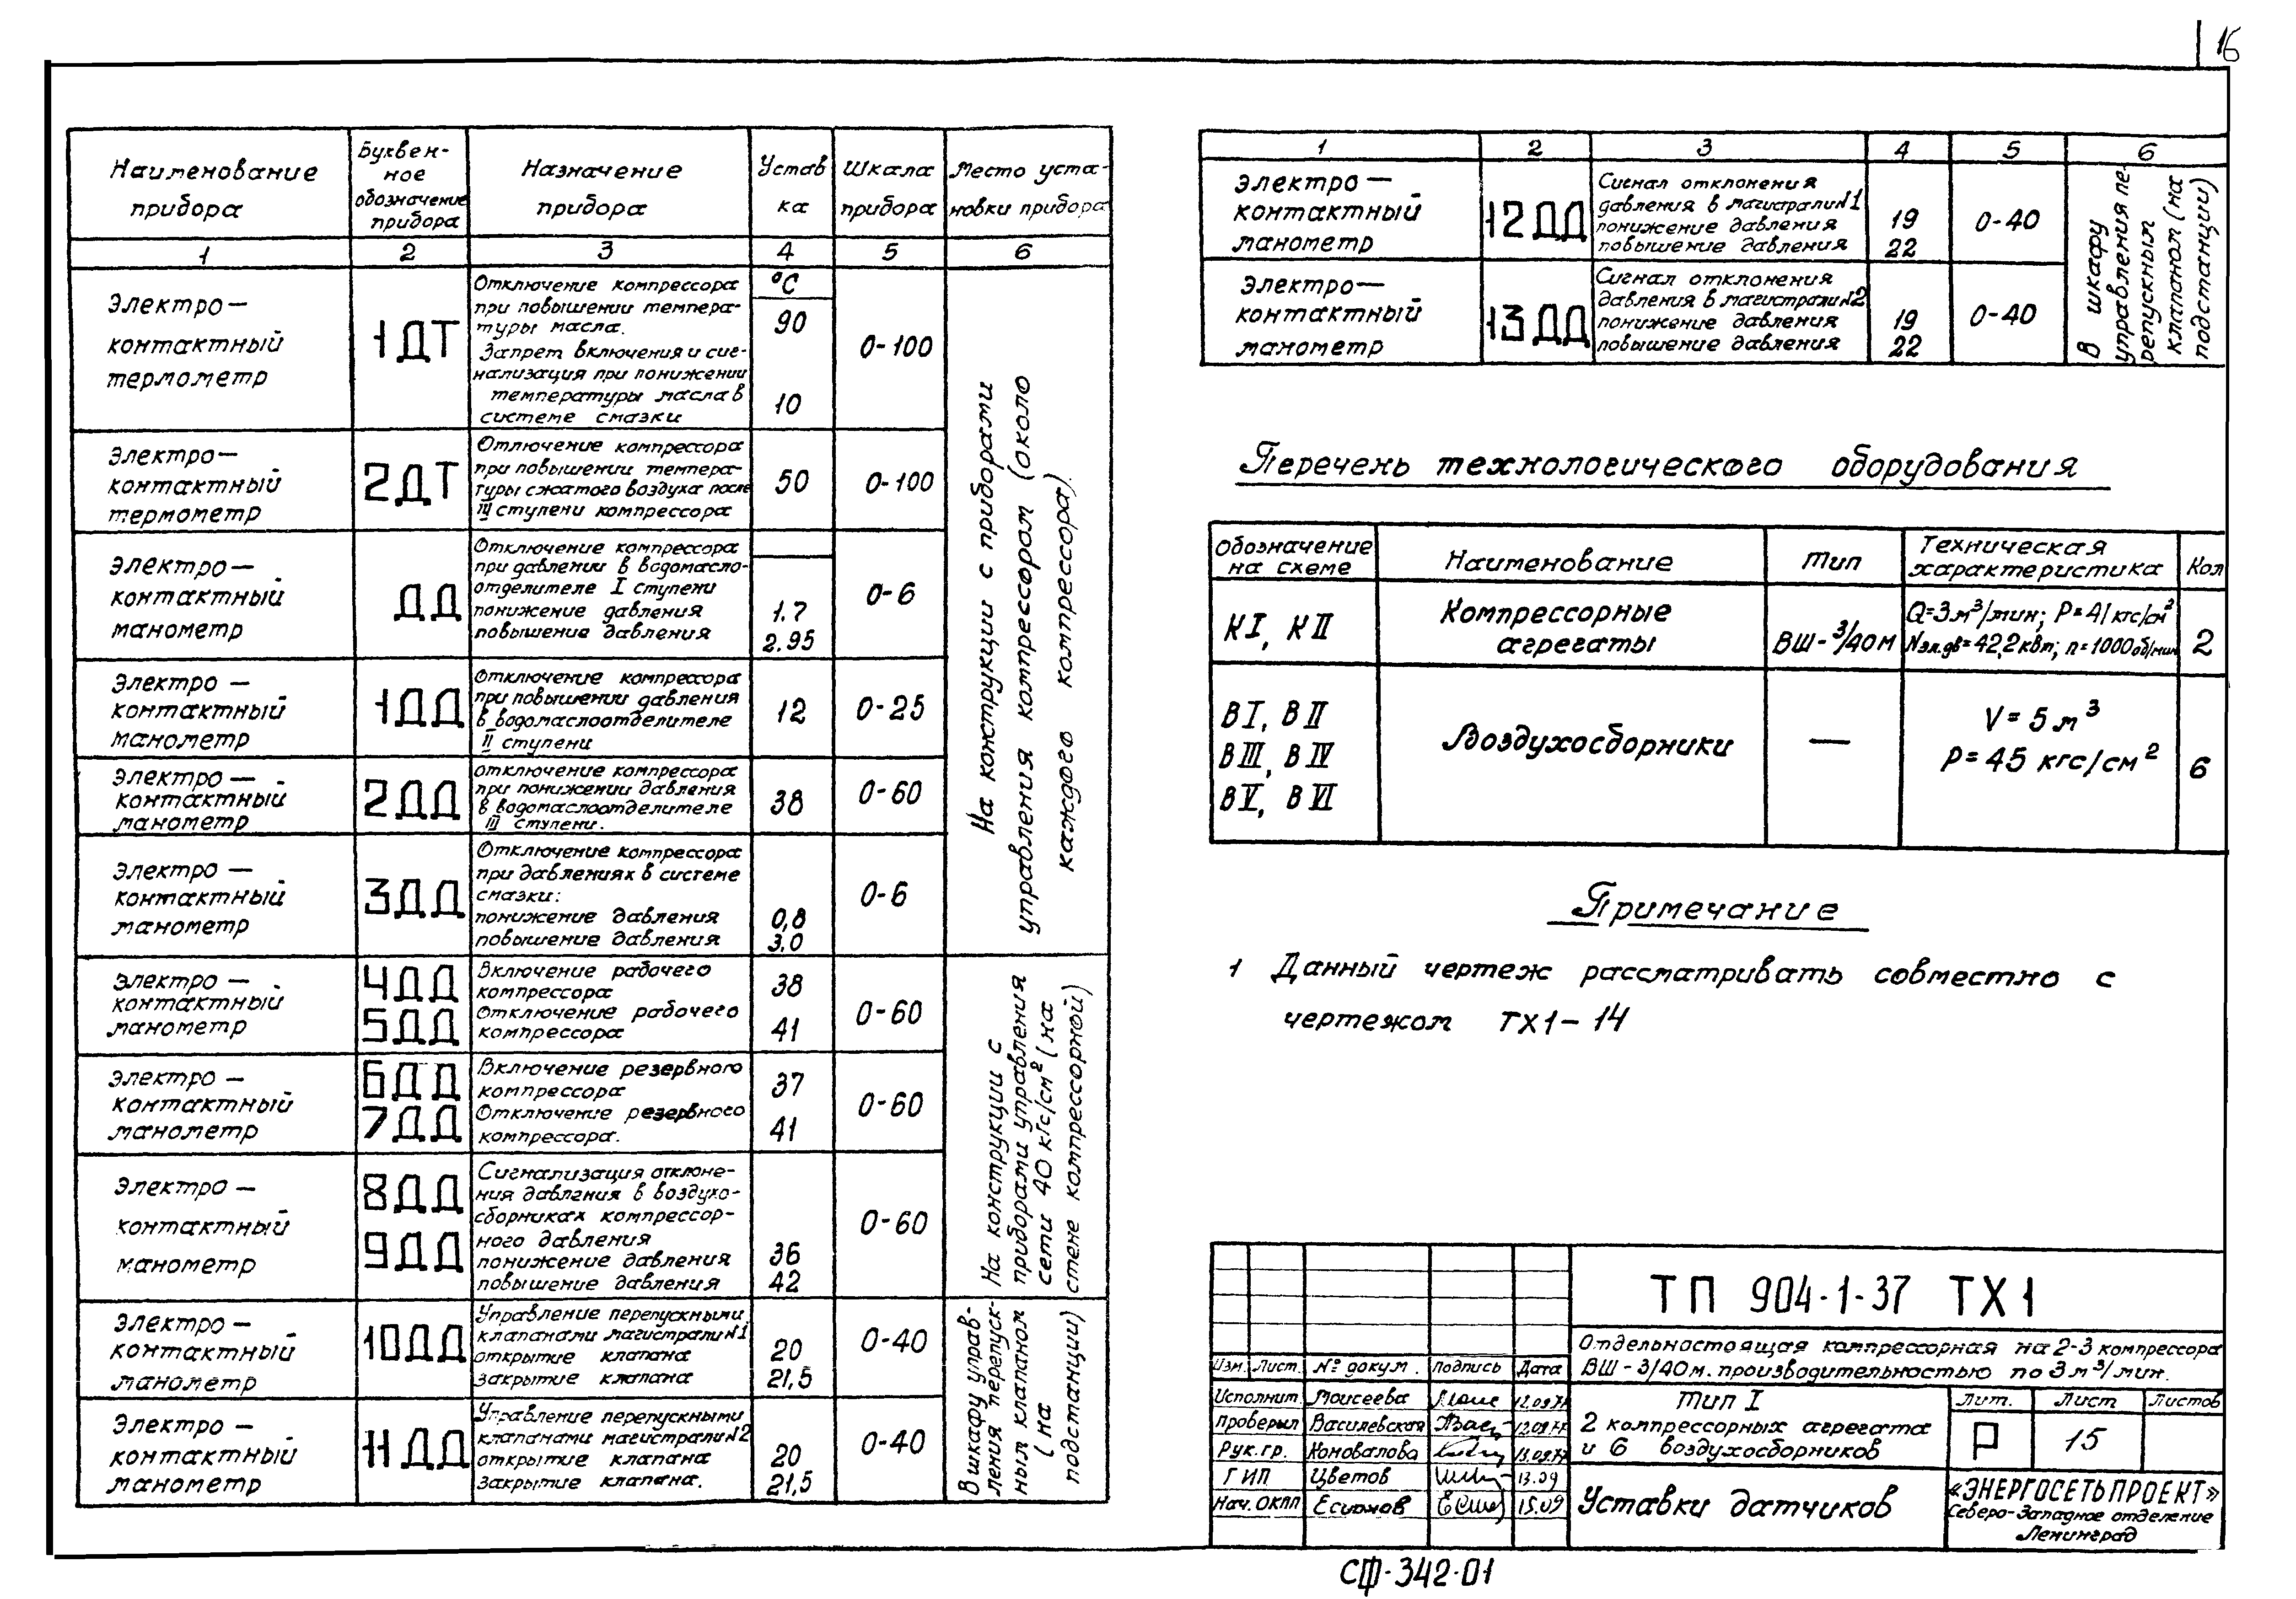 16
Наименование прибора
Буквен-
ное
обозначение
прибора
Назначение прибора
Устав
ка
Шкала прибора
Место уста-
новки прибора
1 2 3 4 5 6
Электро—
контактный
термометр
1ДТ
Отключение компрессора
при повышении темпера-
туры масла.
Запрет включения и сиг-
нализация при понижении
температуры масла в
системе смазки
°С
90
10
0-100
Электро—
контактный
термометр
2ДТ
Отлючение компрессора
при повышении темпера-
туры сжатого воздуха после
III ступени компрессора
50
0-100
Электро—
контактный
манометр
ДД
Отключение компрессора
при давлении в водомасло-
отделителе I ступени
понижение давления
повышение давления
1.7
2.95
0-6
Электро—
контактный
манометр
1ДД
Отключение компрессора
при повышении давления
в водомаслоотделителе
II ступени
12
0-25
Электро—
контактный
манометр
2ДД
отключение компрессора
при понижении давления
в водомаслоотделителе
III ступени.
38
0-60
Электро—
контактный
манометр
3ДД
Отключение компрессора
при давлениях в системе
смазки:
понижение давления
повышение давления
0,8
3.0
0-6
На конструкции с приборами
управления компрессором (около
каждого компрессора).
Электро—
контактный
манометр
4ДД
5ДД
Включение рабочего
компрессора
Отключение рабочего
компрессора
38
41
0-60
Электро—
контактный
манометр
6ДД
7ДД
Включение резервного
компрессора
Отключение резервного
компрессора.
37
41
0-60
Электро—
контактный
манометр
8ДД
9ДД
Сигнализация отклоне-
ния давления в воздухо-
сборниках компрессор-
ного давления
понижение давления
повышение давления
36
42
0-60
На конструкции с
приборами управления
сети 40 кгс/см² (на
стене компрессорной)
Электро—
контактный
манометр
10ДД
Управление перепускными
клапанами магистрали N1
открытие клапана
закрытие клапана
20
21,5
0-40
Электро—
контактный
манометр
11ДД
Управление перепускными
клапанами магистрали N2
открытие клапана
закрытие клапана.
20
21,5
0-40
В шкафу управ-
ления перепуск-
ным клапаном
(на
подстанции)
1 2 3 4 5 6
Электро—
контактный
манометр
12ДД
Сигнал отклонения
давления в магистрали N1
понижение давления
повышение давления
19
22
0-40
Электро—
контактный
манометр
13ДД
Сигнал отклонения
давления в магистрали N2
понижение давления
повышение давления
19
22
0-40
В шкафу
управления пе-
репускным
клапаном (на
подстанции)
Перечень технологического оборудования
Обозначение
на схеме
Наименование
Тип
Техническая
характеристика
Кол
КI, КII
Компрессорные
агрегаты
ВШ-3/40М
Q=3м³/мин; Р=41кгс/см²
Nэл.дв=42,2квт; n=1000об/мин
2
ВI, ВII
ВIII, ВIV
ВV, ВVI
Воздухосборники
—
V=5м³
Р=45 кгс/см²
6
Примечание
1 Данный чертеж рассматривать совместно с
чертежом ТХ1-14
ТП 904-1-37 ТХ1
Отдельностоящая компрессорная на 2-3 компрессора
ВШ-3/40м. производительностью по 3м³/мин.
Изм. Лист. № докум. Подпись Дата
Исполнит. Моисеева 12.09.77
Проверил Василевская 12.09.77
Рук.гр. Коновалова 13.09.77
ГИП Цветов 13.09
Нач.ОКПП 15.09
Тип I
2 компрессорных агрегата
и 6 воздухосборников
Лит. Лист Листов
Р 15
Уставки датчиков
«ЭНЕРГОСЕТЬПРОЕКТ»
Северо-Западное отделение
Ленинград
СФ-342-01